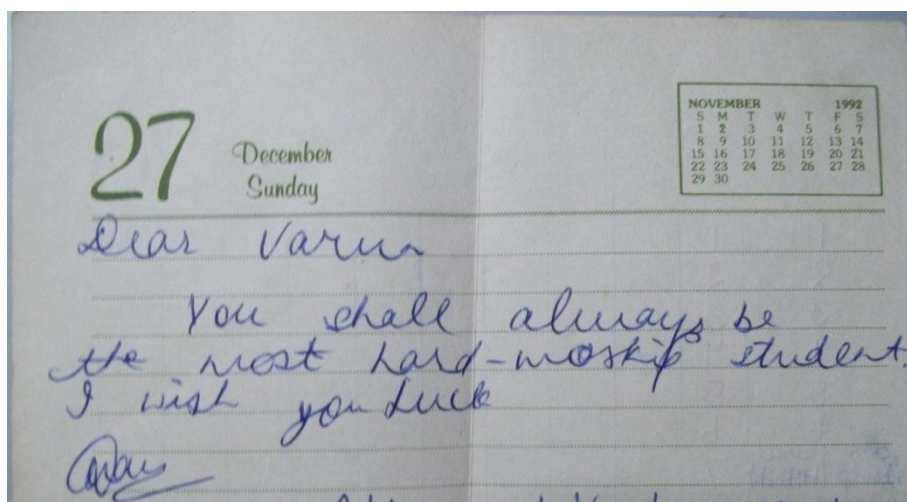 27
December
Sunday
NOVEMBER 1992
S M T W T F S
1 2 3 4 5 6 7
8 9 10 11 12 13 14
15 16 17 18 19 20 21
22 23 24 25 26 27 28
29 30
Dear Varun
You shall always be
the most hard-working student.
I wish you luck